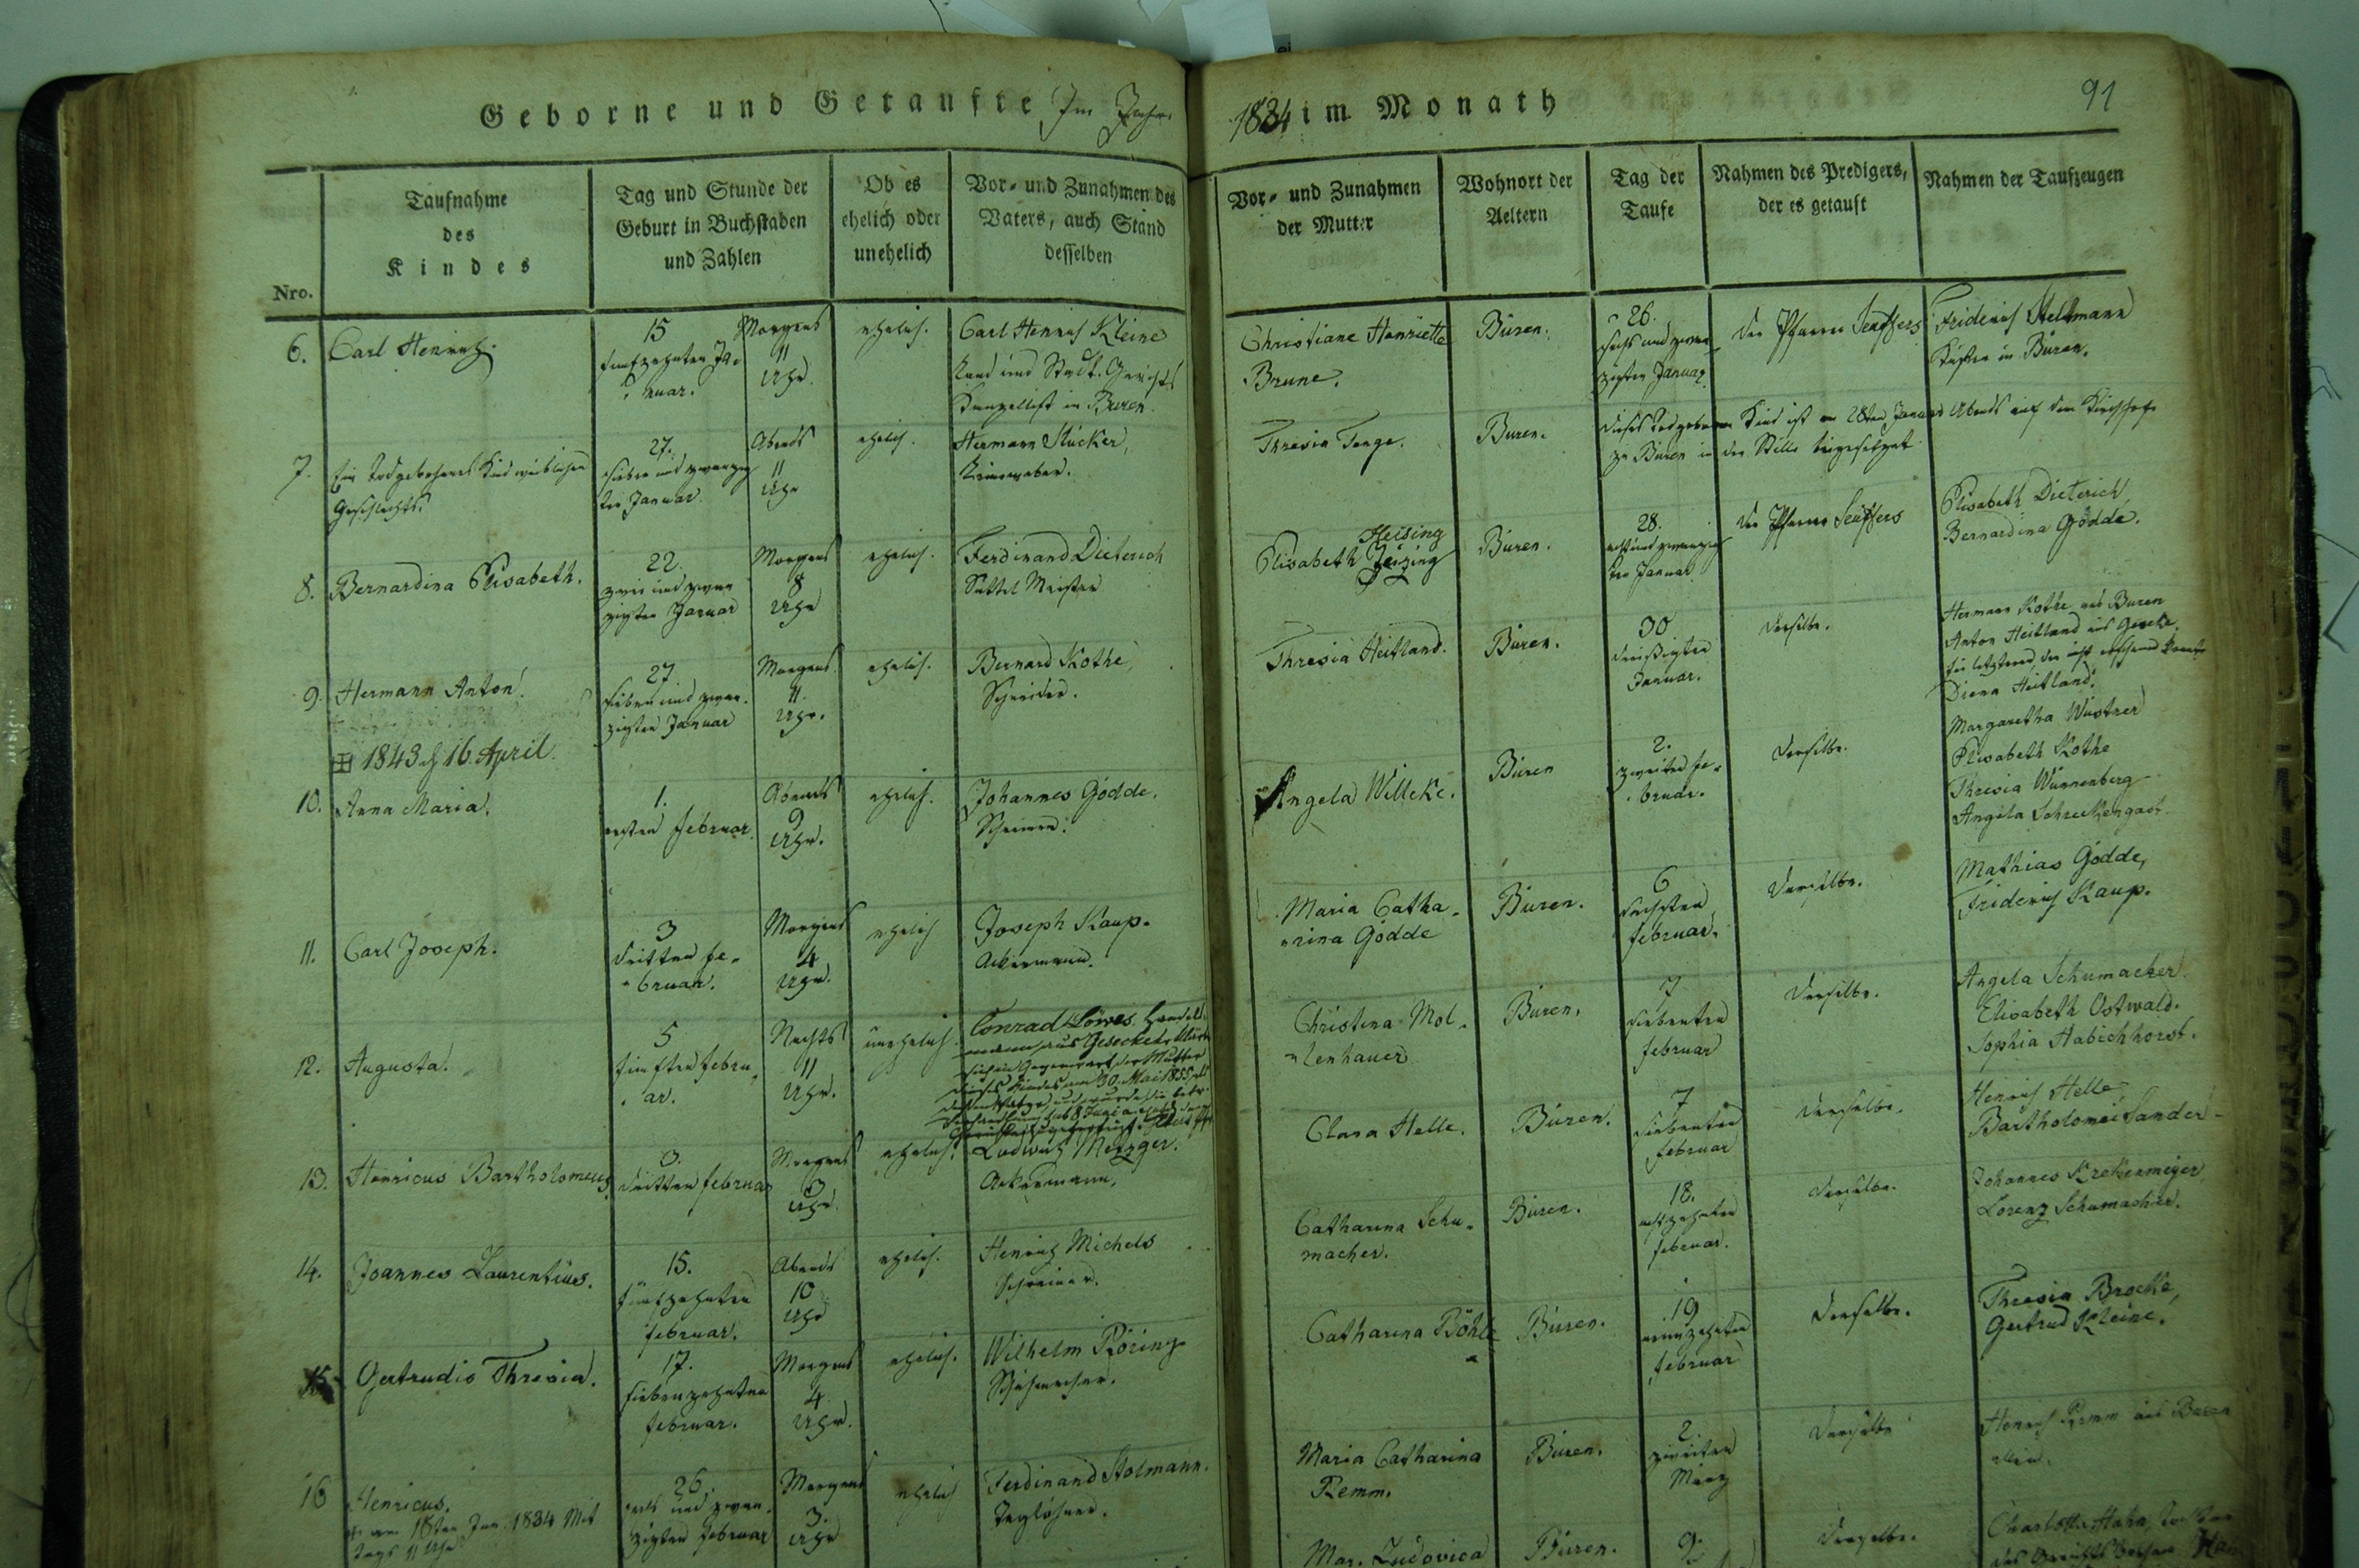 Geborne und Getaufte Im Jahre 1834 im Monath
91
Nro.
Taufnahme
des
Kindes
Tag und Stunde der
Geburt in Buchstaben
und Zahlen
Ob es
ehelich oder
unehelich
Vor- und Zunahmen des
Vaters, auch Stand
desselben
Vor- und Zunahmen
der Mutter
Wohnort der
Aeltern
Tag der
Taufe
Nahmen des Predigers,
der es getauft
Nahmen der Taufzeugen
6.
Carl Henrich
15
funfzehnten Ja-
nuar.
Morgens
11
Uhr.
ehelich.
Carl Henrich Kleine
Land und Stadt-Gerichts
Kanzellist in Büren.
Christiane Henriette
Brune.
Büren.
26.
sechs und zwan-
zigten Januar
der Pfarrer
Friderich Stellmann
Küster in Büren.
7.
Ein todgebohrenes Kind weiblichen
Geschlechts.
27.
sieben und zwanzig
ten Januar.
Abends
11
Uhr
ehelich.
Hermann Stücker,
Leineweber.
Thresia Tenge.
Büren.
dieses todgeborene Kind ist am 28ten Januar Abends auf dem Kirchhofe
zu Büren in der Stille beigesetzet.
8.
Bernardina Elisabeth.
22.
zwei und zwan
zigten Januar
Morgens
8
Uhr
ehelich.
Ferdinand Dieterich
Sattel Meister
Heising
Elisabeth
Büren.
28.
acht und zwanzig
ten Januar
der Pfarrer
Elisabeth Dieterich,
Bernardina Gödde.
9.
Hermann Anton.
1843 d 16. April.
27.
sieben und zwan-
zigten Januar
Morgens
11.
Uhr.
ehelich.
Bernard Kothe,
Schneider.
Thresia Heitland.
Büren.
30
dreißigten
Januar.
derselbe.
Hermann Kothe aus Büren
Anton Heitland aus Geseke.
für letzteren, der nicht erschienen konnte
Heitland.
10.
Anna Maria.
1.
ersten Februar.
Abends
9
Uhr.
ehelich.
Johannes Gödde.
Schreiner.
Angela Willeke.
Büren
2.
zweiten Fe-
bruar.
derselbe.
Margaretha
Elisabeth Kothe
Thresia Wünnenberg
Angela Schreckengast.
11.
Carl Joseph.
3
dritten Fe-
bruar.
Morgens
4
Uhr.
ehelich
Joseph Kaup.
Ackermann.
Maria Catha-
rina Gödde
Büren.
6
sechsten
Februar.
derselbe.
Mathias Gödde,
Friderich Kaup.
12.
Augusta.
5
fünften Febru-
ar.
Nachts
11
Uhr.
unehelich.
Conrad Löwes Handels-
mann aus Geseke
sich in Gegenwart der Mutter
dieses Kindes am 30. Mai 1855 als
dessen Vater
Christina Mol-
lenhauer
Büren.
7
siebenten
Februar
derselbe.
Angela Schumacher
Elisabeth Ostwald.
Sophia Habichhorst.
13.
Henricus Bartholomeus
3.
dritten Februar
Morgens
3
Uhr.
ehelich.
Ludwich Metzger.
Ackermann.
Clara Helle.
Büren.
7
siebenten
Februar
derselbe.
Henrich Helle
Bartholomei Sander
14.
Joannes Laurentius.
15.
fünfzehnten
Februar.
Abends
10
Uhr
ehelich.
Henrich Michels
Schreiner.
Catharina Schu-
macher.
Büren.
18.
achtzehnten
Februar.
derselbe.
Johannes Krekenmeyer,
Lorenz Schumacher.
15
Gertrudis Thresia.
17.
siebenzehnten
Februar.
Morgens
4
Uhr.
ehelich.
Wilhelm Röring
Schumacher.
Catharina Böhle
Büren.
19
neunzehnten
Februar
derselbe.
Thresia Brocke,
Gertrud Kleine.
16
Henricus.
am 18ten Jun. 1834 Mit
tags 11 Uhr
26.
sechs und zwan-
zigten Februar
Morgens
3.
Uhr
ehelich
Ferdinand Stolmann.
Taglöhner.
Maria Catharina
Remm.
Büren.
2.
zweiten
März
derselbe
Henrich Remm aus Büren
allein.
Mar. Ludovica
Büren.
9.
derselbe.
Charlotta Hahn,